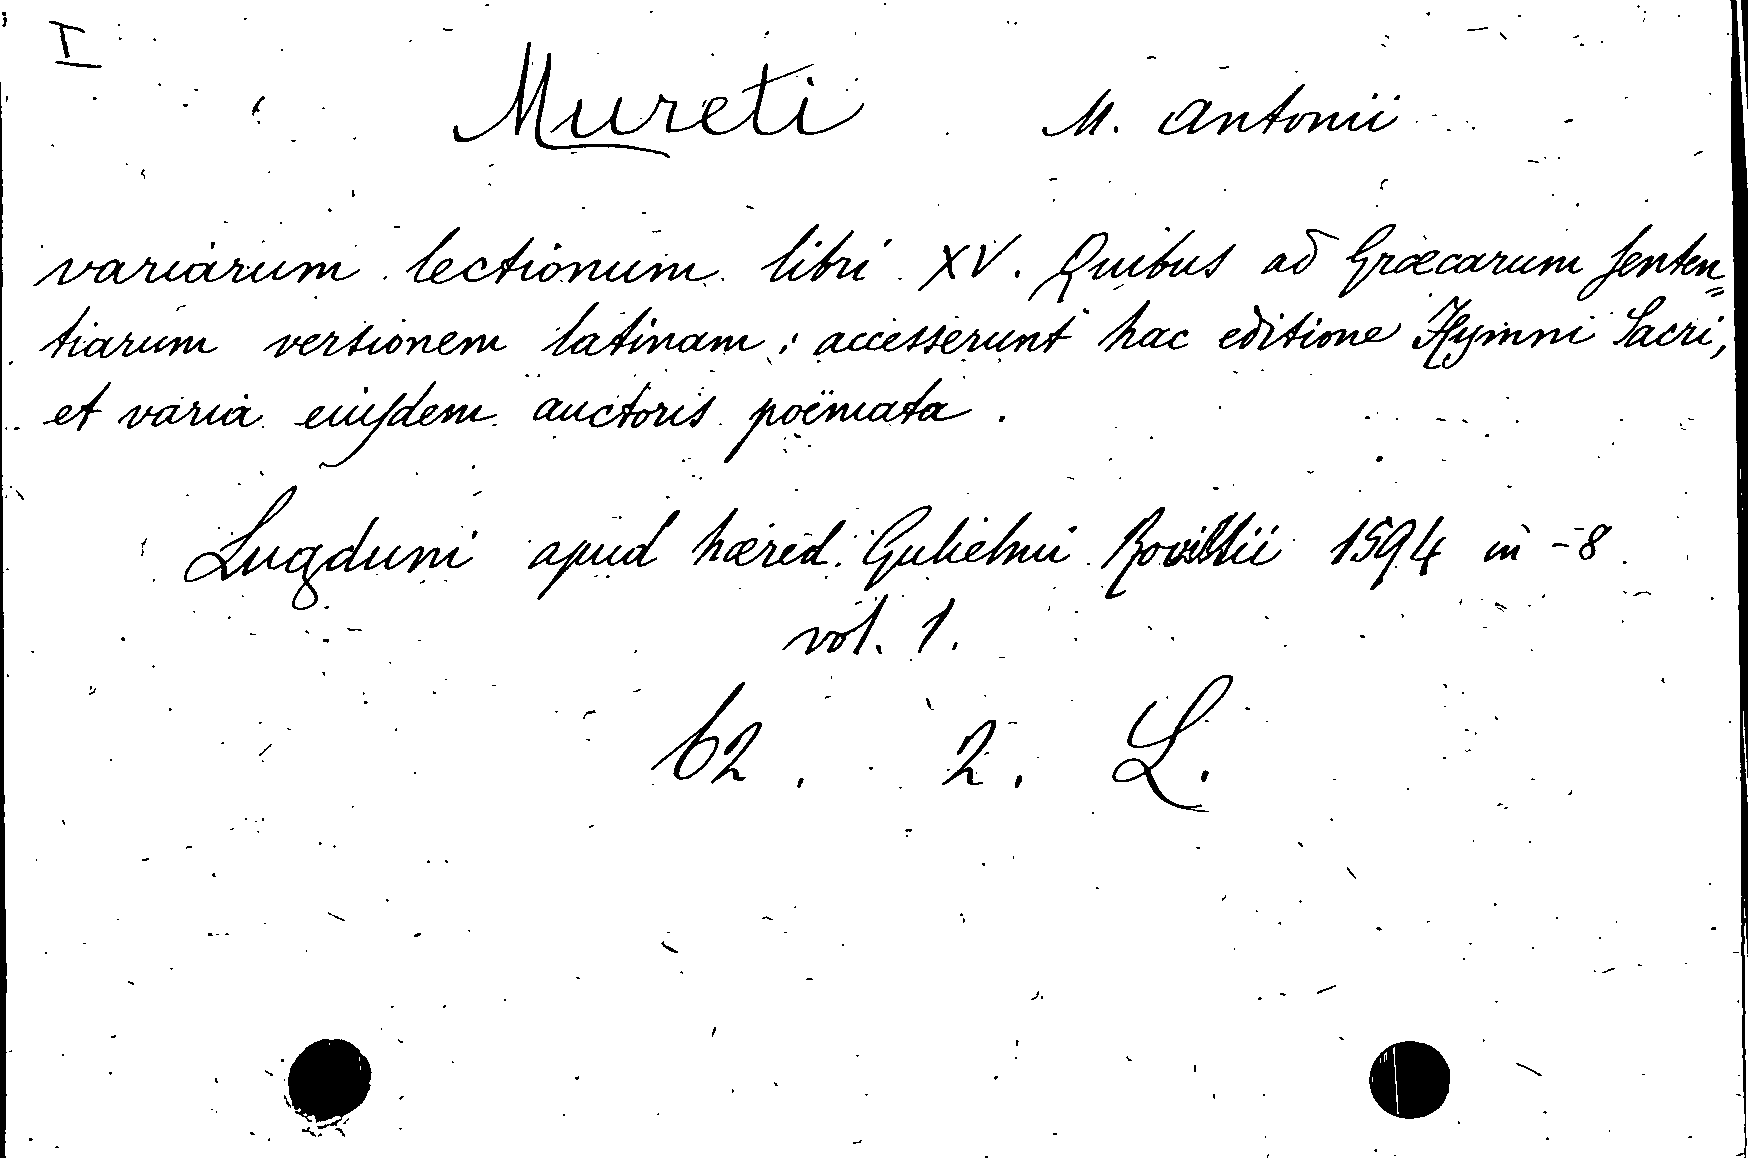 I
Mureti M. Antonii
variarum lectionum libri XV. Quibus ad Græcarum senten=
tiarum versionem latinam; accesserunt hac editione Hymni Sacri,
et varia eiusdem auctoris poëmata.
Lugduni apud hæred. Gulielmi Rovillii 1594 in-8
vol. 1.
62. 2. L.